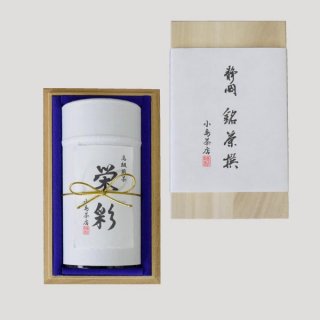 高級煎茶
栄彩
小島茶店
静岡 銘茶撰
小島茶店